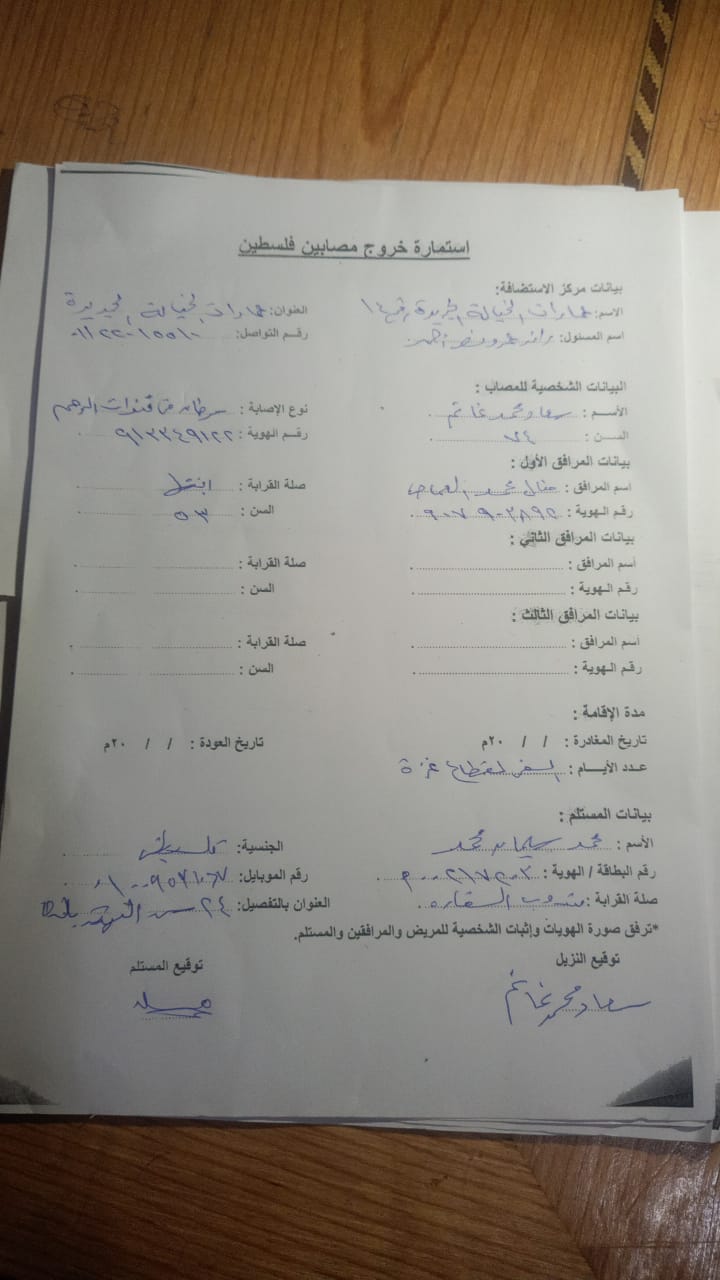 استمارة خروج مصابين فلسطين
بيانات مركز الاستضافة:
الاسم: عمارات الخيالة الجديدة رقم ١٤ العنوان: عمارات الخيالة الجديدة
اسم المسئول: رائد رقم التواصل:
البيانات الشخصية للمصاب :
الأسم : سعاد محمد غانم نوع الإصابة : سرطان في الرحم
السن : ٧٤ رقم الهوية : ٩١٣٣٤٩١٢٢
بيانات المرافق الأول :
اسم المرافق : منال محمد صلة القرابة : ابنتها
رقم الهوية : ٩٠٧٩٠٢٨٩٢ السن : ٥٣
بيانات المرافق الثاني :
أسم المرافق : صلة القرابة :
رقم الهوية : السن :
بيانات المرافق الثالث :
أسم المرافق : صلة القرابة :
رقم الهوية : السن :
مدة الإقامة :
تاريخ المغادرة : / / ٢٠م تاريخ العودة : / / ٢٠م
عدد الأيام : السفر لقطاع غزة
بيانات المستلم :
الأسم : محمد سليمان محمد الجنسية: فلسطيني
رقم البطاقة / الهوية : رقم الموبايل:
صلة القرابة : مندوب السفارة العنوان بالتفصيل: ٢٤
*ترفق صورة الهويات وإثبات الشخصية للمريض والمرافقين والمستلم.
توقيع النزيل توقيع المستلم
سعاد محمد غانم